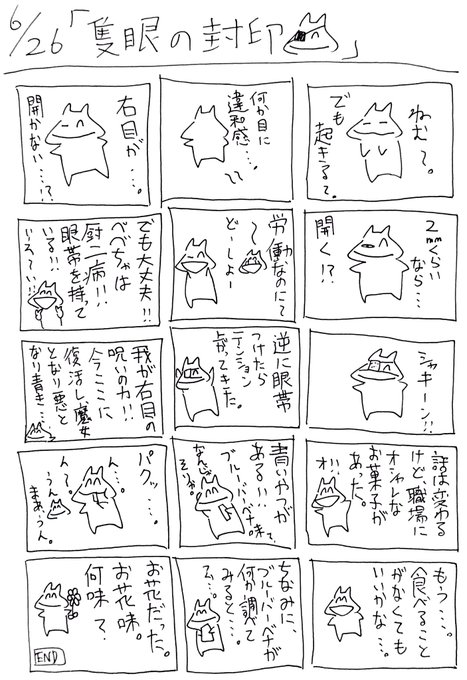 6/26「隻眼の封印」
ねむ〜。
でも
起きるて。
何か目に
違和感…。
右目が…。
開かない…!?
2mmくらい
なら…
開く!?
労働なのにて〜
ど〜しよ〜
でも大丈夫!!
べべちゃは
厨二病!!
眼帯を持って
いる!!
いえ〜い!!
シャキーン!!
逆に眼帯
つけたら
テンション
上がってきた。
我が右目の
呪いの力!!
今ここに
復活し、魔女
となり悪と
なり青き…
話は変わる
けど職場に
オシャレな
お菓子が
あった。
オ!!
青いやつが
ある!!
ブルーバーベナ味て。
なんぞそれ。
パクッ…。
ん…。
ん〜。
うん。
まあ、うん。
もう…。
食べること
がなくても
いいかな…。
ちなみに、
ブルーバーベナが
何か調べて
みると…
え…。
お花だった。
お花味。
何味て。
END